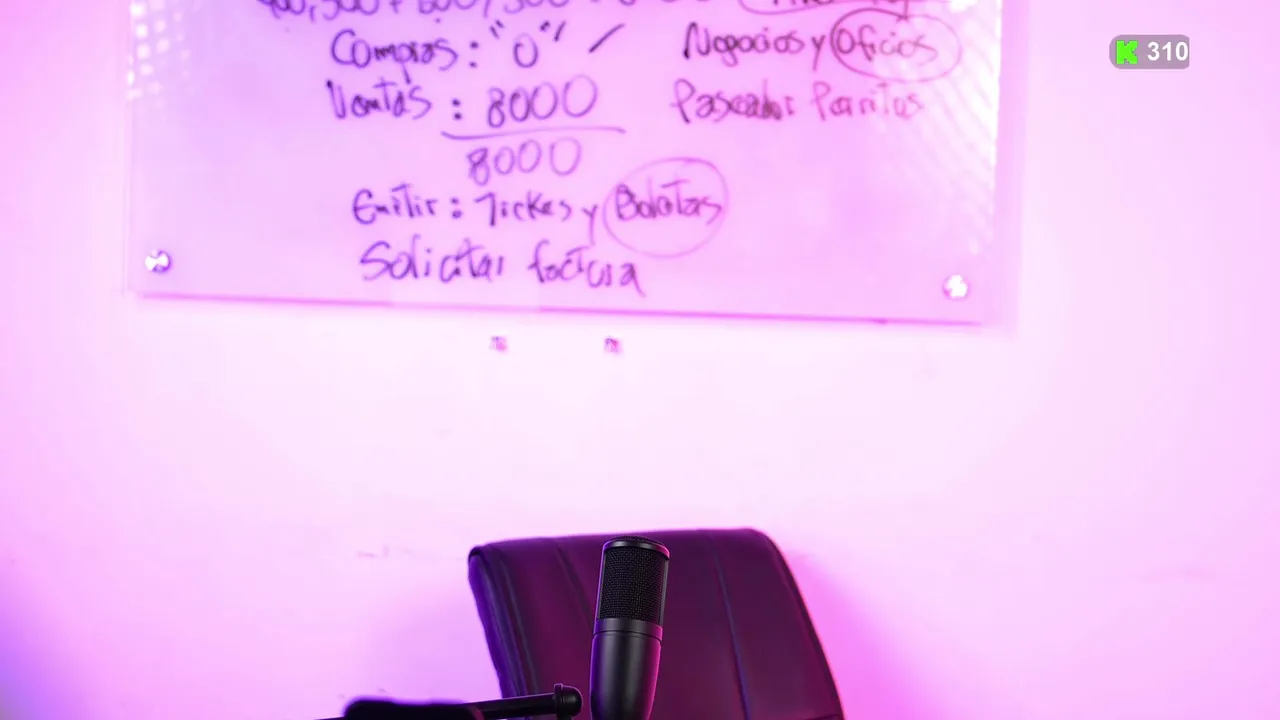 Compras: "0" /
Ventas : 8000
8000
Emitir: Tickes y Boletas
Solicitar factura
Negocios y Oficios
Paseador Perritos
K 310